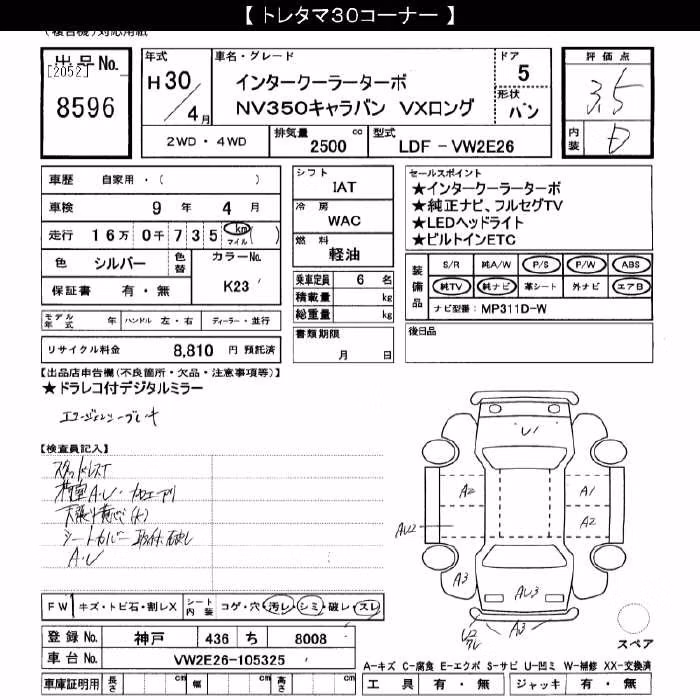 【 トレタマ30コーナー 】
(複合機)対応用紙
出品No.
[2052]
8596
年式
H 30/4月
車名・グレード
インタークーラーターボ
NV350キャラバン VXロング
ドア
5
形状
バン
評価点
3.5
内装
D
2WD・4WD
排気量 2500 cc
型式 LDF-VW2E26
車歴 自家用・( )
車検 9年 4月
走行 16万0千735 km マイル ( )
色 シルバー
色替
カラーNo. K23
保証書 有・無
モデル年式 年 ハンドル 左・右 ディーラー・並行
リサイクル料金 8,810 円 預託済
シフト
IAT
冷房
WAC
燃料
軽油
乗車定員 6 名
積載量 kg
総重量 kg
書類期限
月 日
セールスポイント
★インタークーラーターボ
★純正ナビ、フルセグTV
★LEDヘッドライト
★ビルトインETC
装備品
S/R 純A/W P/S P/W ABS
純TV 純ナビ 革シート 外ナビ エアB
ナビ型番: MP311D-W
後日品
【出品店申告欄(不良箇所・欠品・注意事項等)】
★ドラレコ付デジタルミラー
エマージェンシーブレーキ
【検査員記入】
A・U
シートカバー
A・U
U1
A2
A1
AU2
A2
A3
A3
AU3
A3
スペア
FW キズ・トビ石・割レX
シート内装 コゲ・穴・汚レ・シミ・破レ・スレ
登録No. 神戸 436 ち 8008
車台No. VW2E26-105325
車庫証明用 長さ cm 幅 cm 高さ cm
A-キズ C-腐食 E-エクボ S-サビ U-凹ミ W-補修 XX-交換済
工具 有・無 ジャッキ 有・無